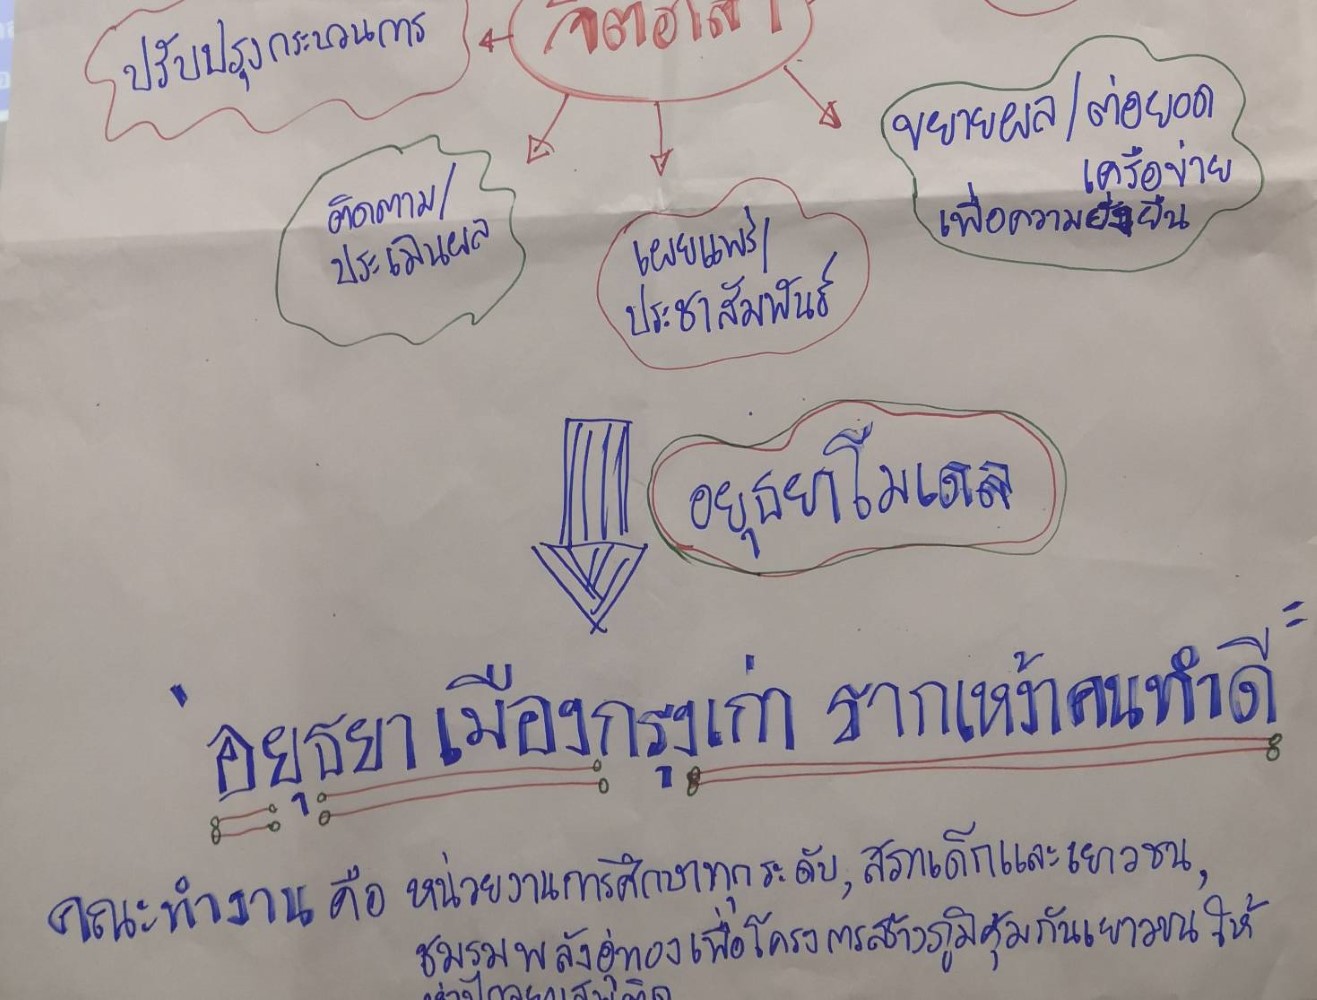 จิตอาสา
ปรับปรุงกระบวนการ
ขยายผล/ต่อยอด
เครือข่าย
เพื่อความยั่งยืน
ติดตาม/
ประเมินผล
เผยแพร่/
ประชาสัมพันธ์
อยุธยาโมเดล
"อยุธยาเมืองกรุงเก่า รากเหง้าคนทำดี"
คณะทำงาน คือ หน่วยงานการศึกษาทุกระดับ, สภาเด็กและเยาวชน,
ชมรมพลังอู่ทองเพื่อโครงการสร้างภูมิคุ้มกันเยาวชน ให้
ห่างไกลยาเสพติด